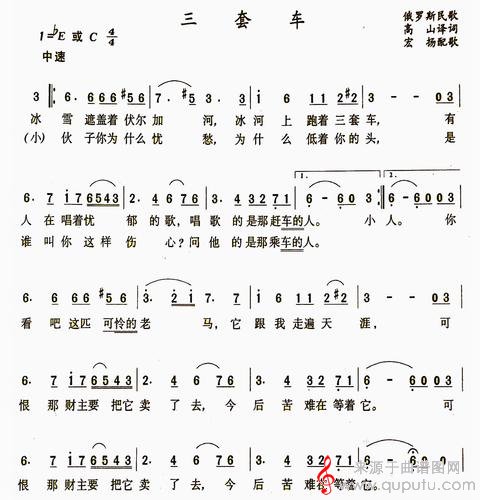 三 套 车
俄罗斯民歌
高 山译词
宏 扬配歌
1=♭E 或 C 4/4
中速
3 ‖: 6. 666#56 | 7. #5 3. 3 | i 6 112#2 | 3 - - 03 |
冰 雪 遮盖着 伏尔 加 河, 冰河 上 跑着 三套 车, 有
(小) 伙 子你为 什么 忧 愁, 为什 么 低着 你的 头, 是
6. 7 i76543 | 2. 4 6 76 | 3. 43271 | 6 - 6003 :‖ 6 - 6. 03 |
1. 2.
人 在唱着忧 郁 的歌, 唱歌 的是那赶车的人。 小 人。 你
谁 叫你 这样 伤 心? 问他 的是那乘车的人。
6. 6 6 6#56 | 3. 2i 7. #56 | i. 6 112#2 | 3 - - 03 |
看 吧 这匹 可怜的老 马, 它 跟 我 走遍 天 涯, 可
6. 7 i76543 | 2. 4 6 76 | 3. 43271 | 6 - 6003 |
恨 那财主要 把它 卖 了 去, 今 后 苦 难在等着它。 可
6. 7 i76543 | 2. 4 6 76 | 3. 43271 | 6 - 6003
恨 那财主要 把它 卖 了 去, 今 后 苦 难在等着它。
来源于曲谱网
www.quputu.com